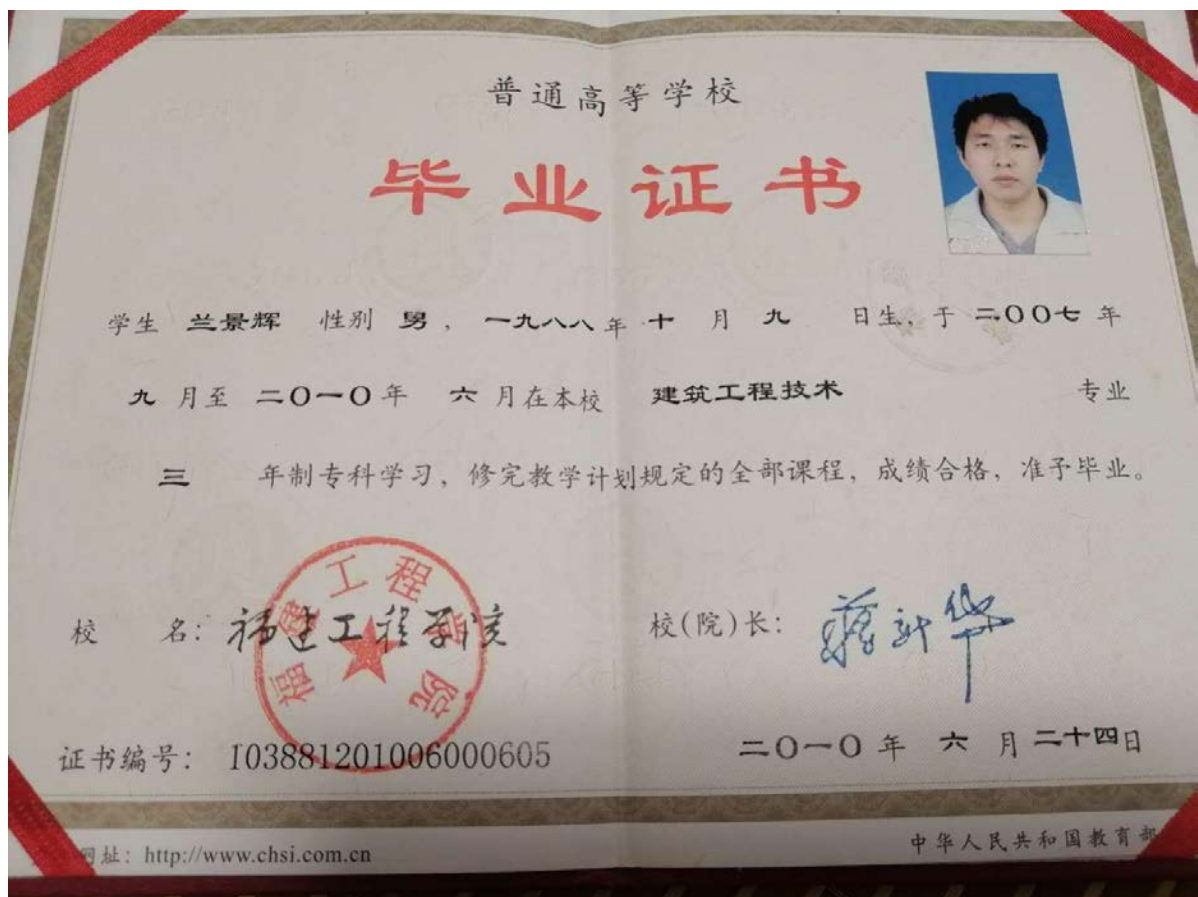 普通高等学校
毕业证书
学生 兰景辉 性别 男，一九八八年 十 月 九 日生，于 二〇〇七 年
九 月至 二〇一〇 年 六 月在本校 建筑工程技术 专业
三 年制专科学习，修完教学计划规定的全部课程，成绩合格，准予毕业。
校 名：福建工程学院
福建工程学院
校(院)长：蒋新华
证书编号：103881201006000605
二〇一〇 年 六 月 二十四日
网址：http://www.chsi.com.cn
中华人民共和国教育部